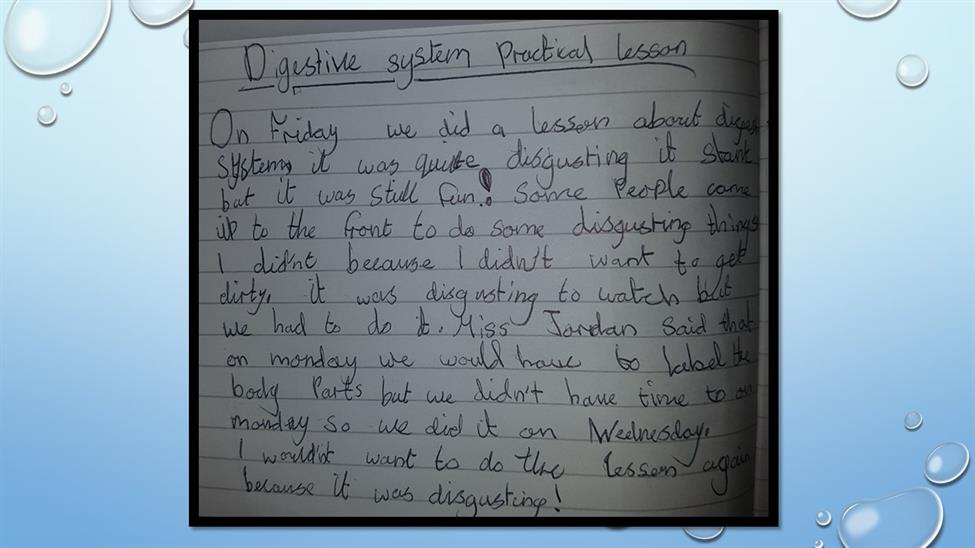 Digestive system Practical lesson
On Friday we did a lesson about diges
system, it was quite disgusting it stank
but it was still fun! Some People came
up to the front to do some disgusting things
I did'nt because I didn't want to get
dirty. it was disgusting to watch but
we had to do it. Miss Jordan said that
on monday we would have to label the
body Parts but we didn't have time to on
monday so we did it on Wednesday.
I would'nt want to do the lesson again
because it was disgusting!